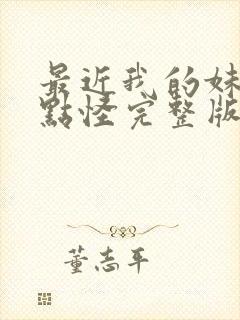 最近我的妹
點怪完整版
董志平